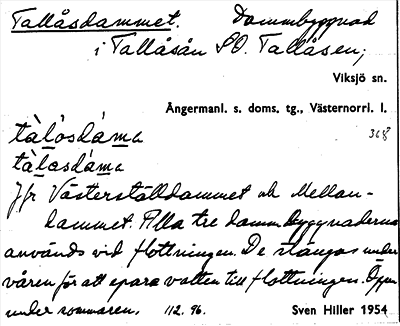 Tallåsdammet. Dammbyggnad
i Tallåsån SO. Tallåsen;
Viksjö sn.
Ångermanl. s. doms. tg., Västernorrl. l.
368
tàlósdáma
tàlasdáma
Jfr Västerställdammet och Mellan-
dammet. Alla tre dammbyggnaderna
används vid flottningen. De stängas under
våren för att spara vatten till flottningen. Öppen
under sommaren. 112. 96. Sven Hiller 1954